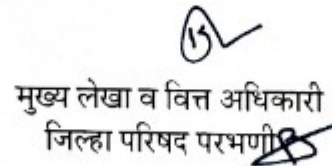 15
मुख्य लेखा व वित्त अधिकारी
जिल्हा परिषद परभणी